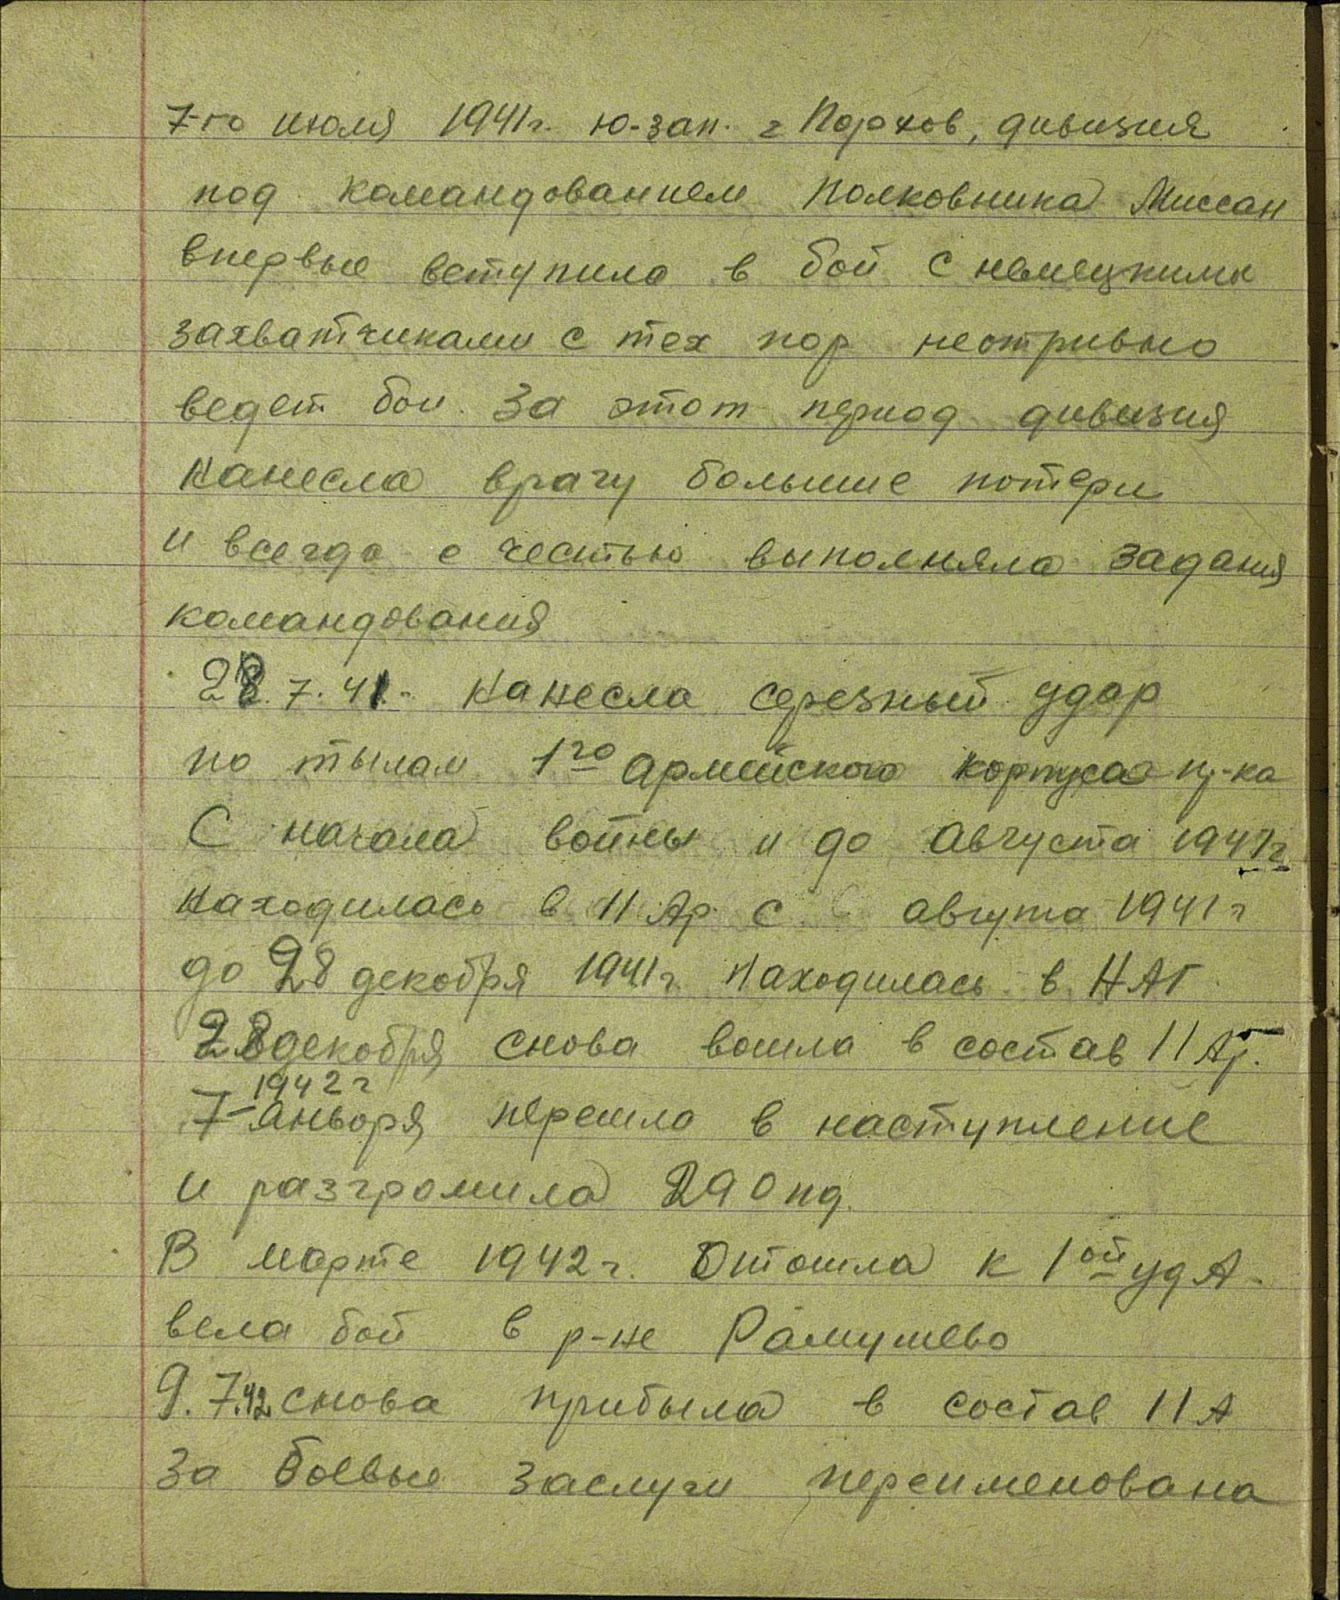 7-го июля 1941г. ю-зап. г Порхов, дивизия
под командованием полковника Миссан
впервые вступила в бой с немецкими
захватчиками с тех пор неотривно
ведет бои. За этот период дивизия
нанесла врагу большие потери
и всегда с честью выполняла задания
командования
28.7.41. нанесла серезный удар
по тылам 1го Армейского корпуса пр-ка
С начала войны и до августа 1941г
находилась в 11 Ар. с августа 1941г
до 28 декобря 1941г. находилась в НАГ
28 декобря снова вошла в состав 11 Ар.
1942г
7-аньворя перешла в наступление
и разгромила 290 пд.
В марте 1942г. Отошла к 1ой уд А.
вела бой в р-не Рамушево
9.7.42 снова прибыла в состав 11 А
За боевые заслуги переименована